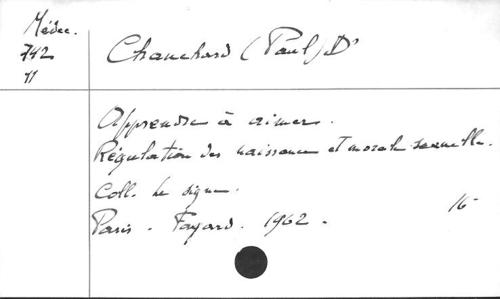 Médec.
742
11
Chauchard (Paul) Dr
Apprendre à aimer.
Régulation des naissance et morale sexuelle.
Coll. le signe.
Paris - Fayard. 1962 -
16-